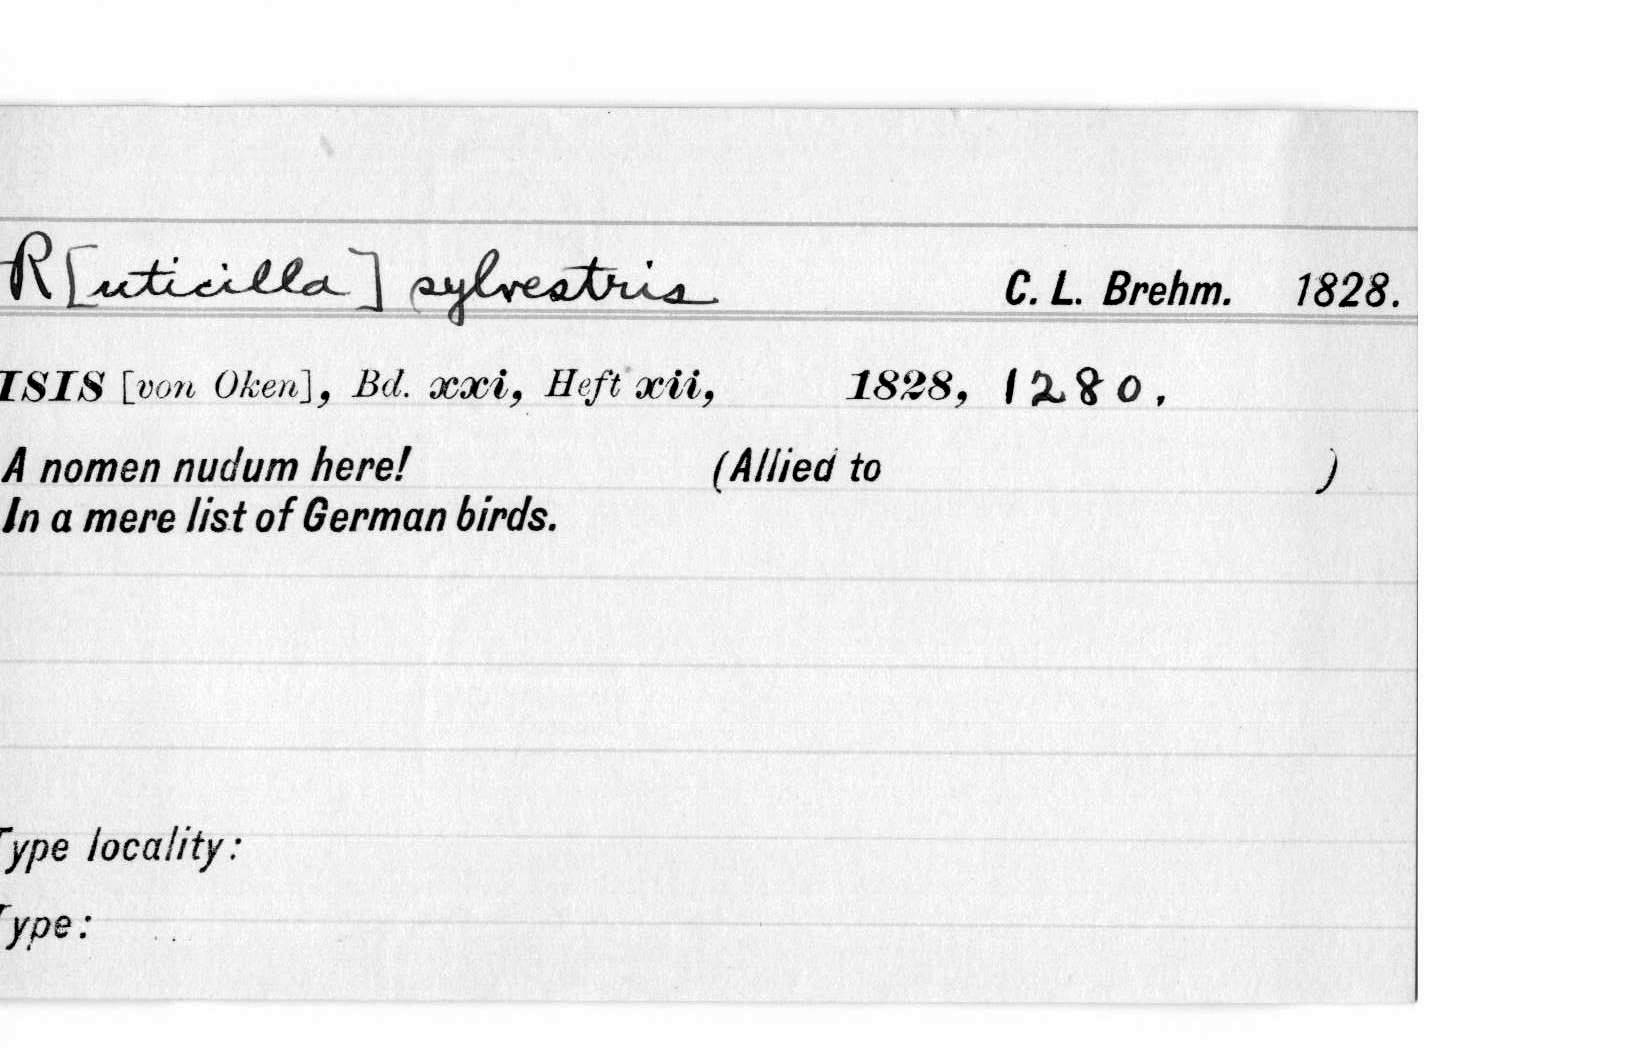 R[uticilla] sylvestris C. L. Brehm. 1828.
ISIS [von Oken], Bd. xxi, Heft xii, 1828, 1280.
A nomen nudum here! (Allied to )
In a mere list of German birds.
Type locality:
Type: